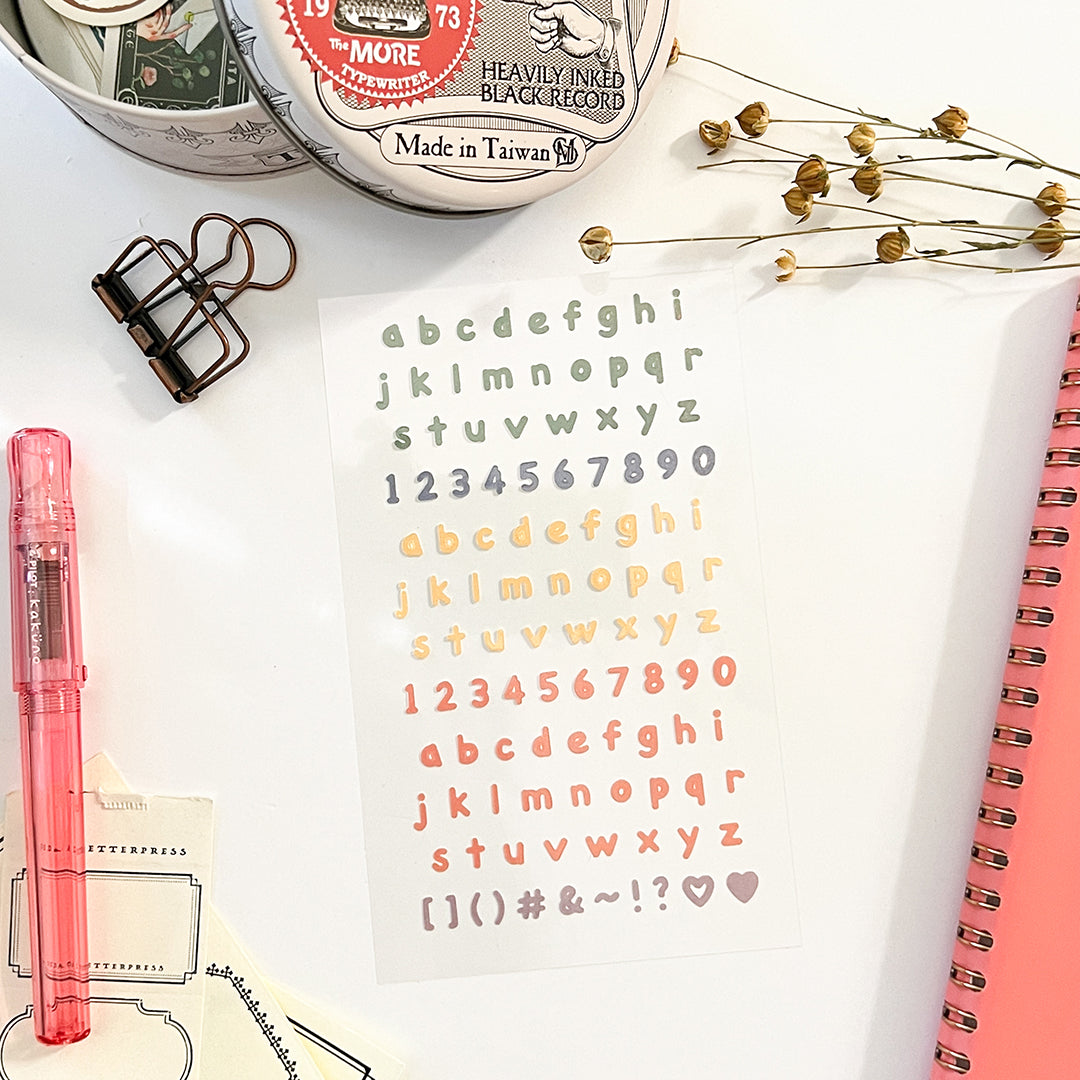 19 73
The MORE
TYPEWRITER
HEAVILY INKED
BLACK RECORD
Made in Taiwan
a b c d e f g h i
j k l m n o p q r
s t u v w x y z
1 2 3 4 5 6 7 8 9 0
a b c d e f g h i
j k l m n o p q r
s t u v w x y z
1 2 3 4 5 6 7 8 9 0
a b c d e f g h i
j k l m n o p q r
s t u v w x y z
[ ] ( ) # & ~ ! ? ♡ ♥
PILOT kaküno
LETTERPRESS
LETTERPRESS